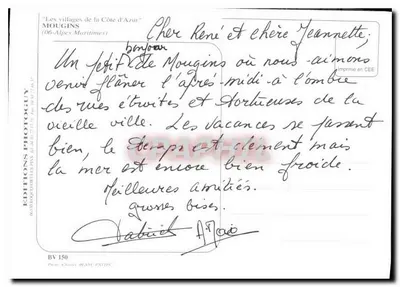 "Les villages de la Côte d'Azur"
MOUGINS
(06-Alpes Maritimes)
Cher René et chère Jeannette,
bonjour
Un petit de Mougins où nous aimons
venir flâner l'après-midi à l'ombre
des rues étroites et tortueuses de la
vieille ville. Les vacances se passent
bien, le temps est clément mais
la mer est encore bien froide.
Meilleures amitiés.
grosses bises.
EDITIONS PHOTOGUY
Imprimé en CEE
BV 150